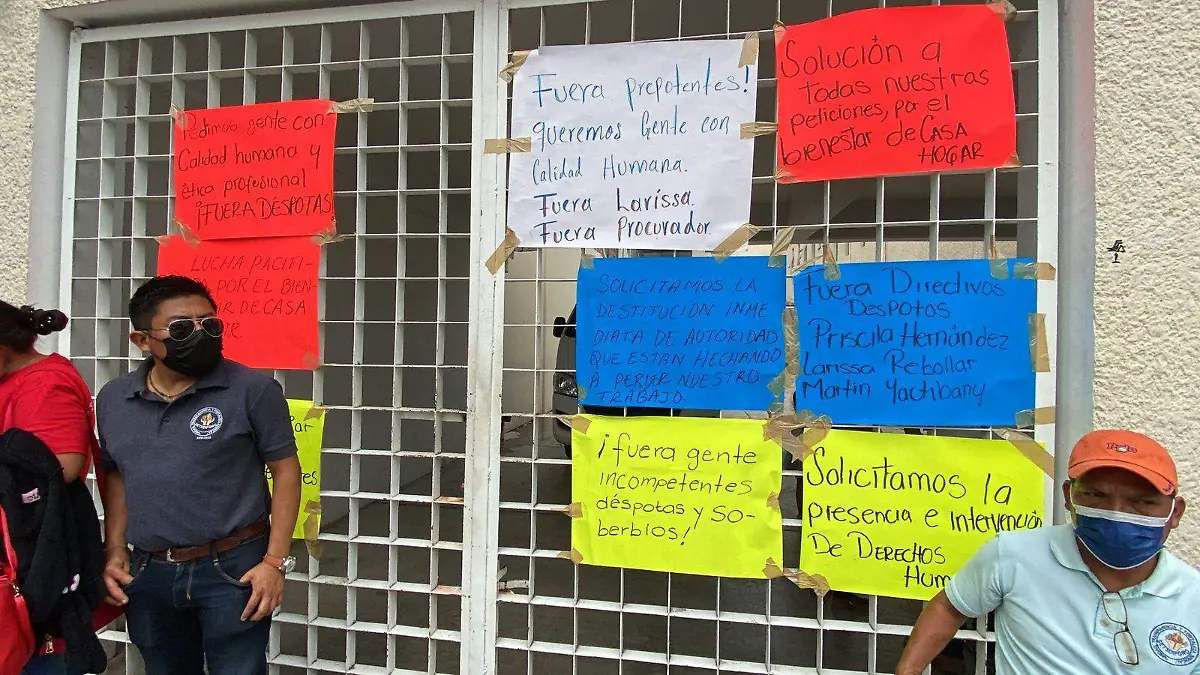 Pedimos gente con
Calidad humana y
ética profesional
¡FUERA DÉSPOTAS
LUCHA PACITI-
POR EL BIEN-
AR DE CASA
Fuera prepotentes!
queremos Gente con
Calidad Humana.
Fuera Larissa.
Fuera Procurador
Solución a
todas nuestras
peticiones, por el
bienestar de CASA
HOGAR
SOLICITAMOS LA
DESTITUCIÓN INME
DIATA DE AUTORIDAD
QUE ESTAN HECHANDO
A PERDER NUESTRO
TRABAJO
Fuera Directivos
Despotas
Priscila Hernández
Larissa Rebollar
Martin Yactibany
¡fuera gente
incompetentes
déspotas y so-
berbios!
Solicitamos la
presencia e Intervención
De DERECHOS
Hum